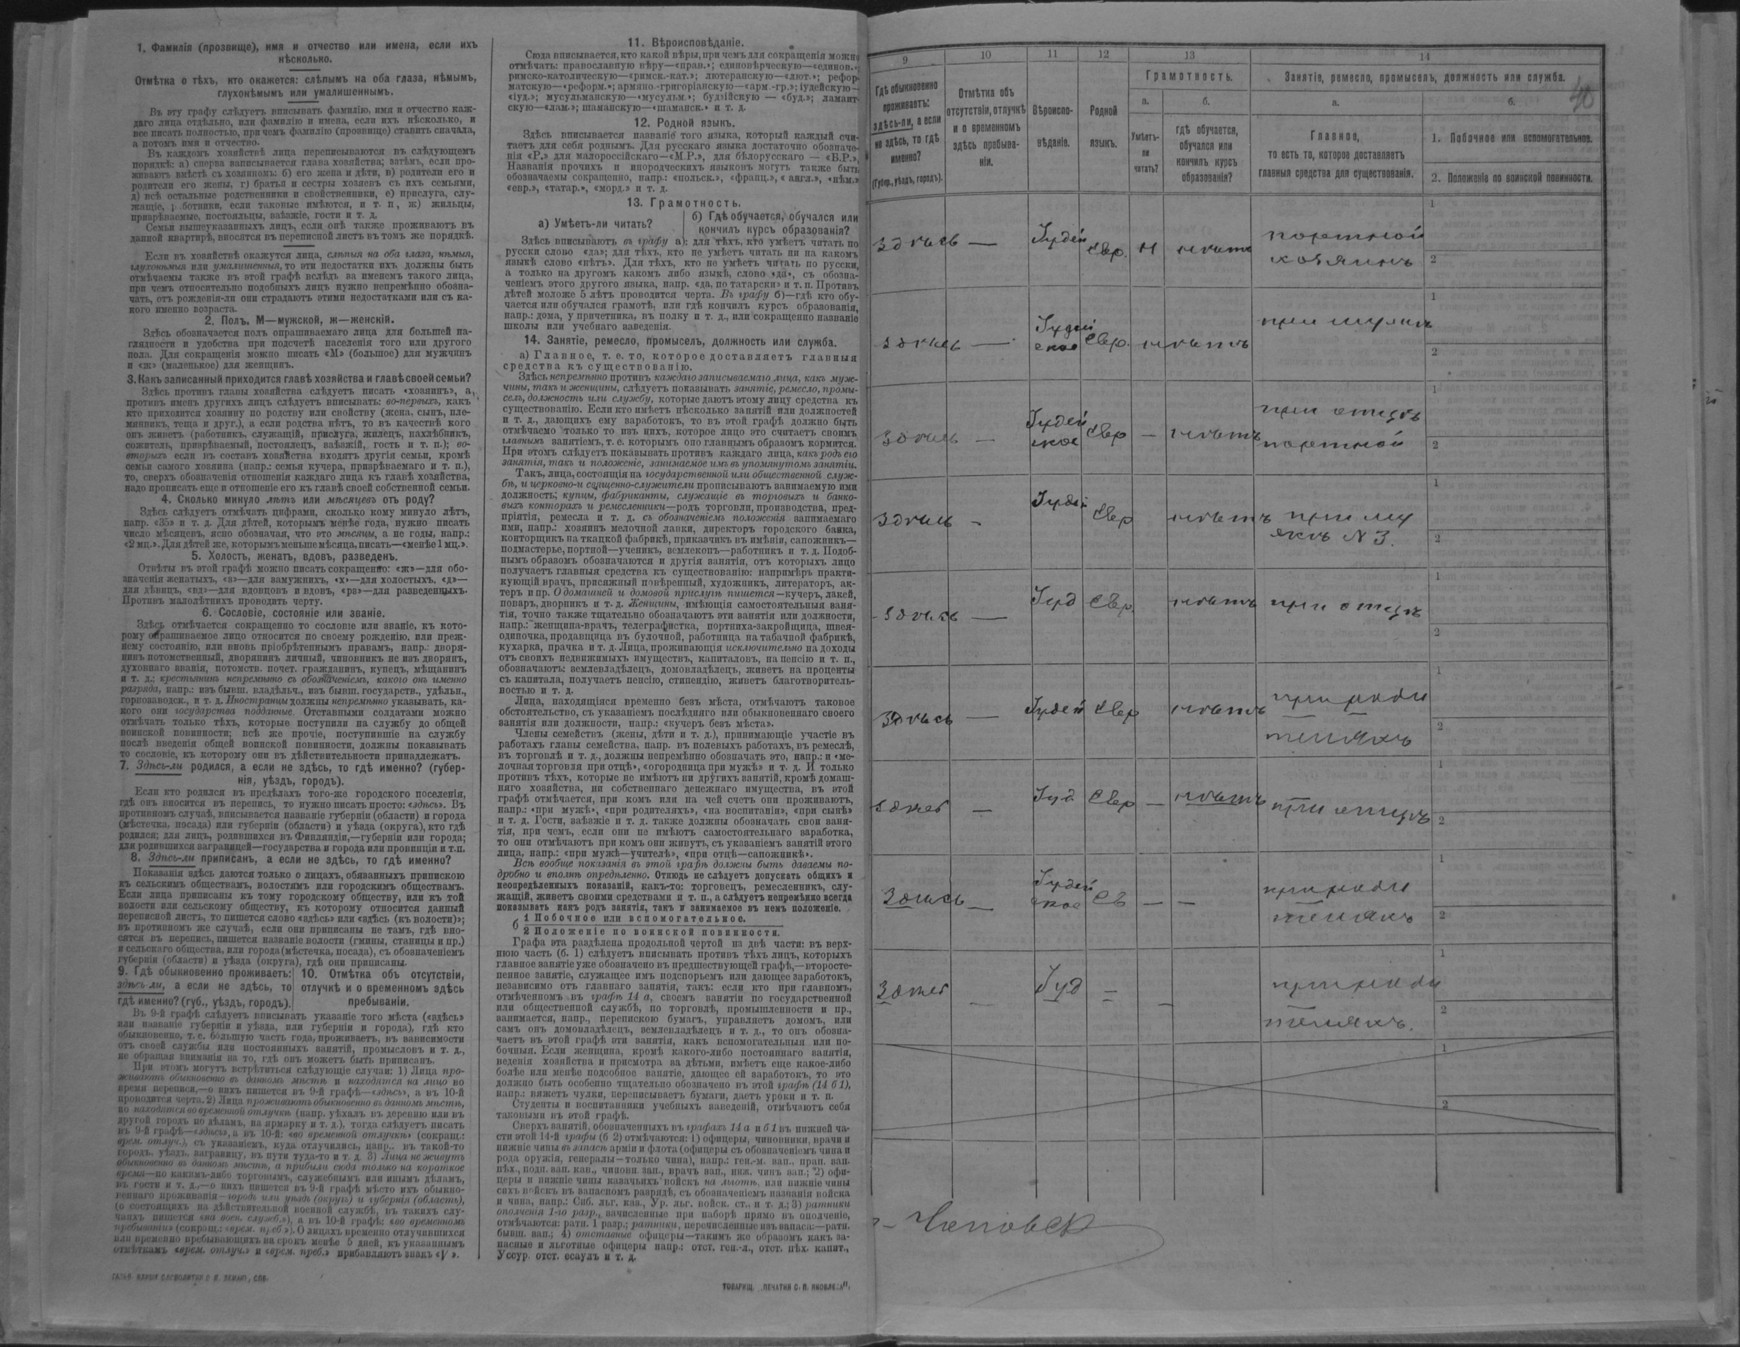 1. Фамилія (прозвище), имя и отчество или имена, если ихъ
нѣсколько.
Отмѣтка о тѣхъ, кто окажется: слѣпымъ на оба глаза, нѣмымъ,
глухонѣмымъ или умалишеннымъ.
Въ эту графу слѣдуетъ вписывать фамилію, имя и отчество каж-
даго лица отдѣльно, или фамилію и имена, если ихъ нѣсколько, и
все писать полностью, при чемъ фамилію (прозвище) ставить сначала,
а потомъ имя и отчество.
Въ каждомъ хозяйствѣ лица переписываются въ слѣдующемъ
порядкѣ: а) сперва записывается глава хозяйства; затѣмъ, если про-
живаютъ вмѣстѣ съ хозяиномъ: б) его жена и дѣти, в) родители его и
родители его жены, г) братья и сестры хозяевъ съ ихъ семьями,
д) всѣ остальные родственники и свойственники, е) прислуга, слу-
жащіе, работники, если таковые имѣются, и т. п., ж) жильцы,
призрѣваемые, постояльцы, заѣзжіе, гости и т. д.
Семьи вышеуказанныхъ лицъ, если онѣ также проживаютъ въ
данной квартирѣ, вносятся въ переписной листъ въ томъ же порядкѣ.
Если въ хозяйствѣ окажутся лица, слѣпыя на оба глаза, нѣмыя,
глухонѣмыя или умалишенныя, то эти недостатки ихъ должны быть
отмѣчены также въ этой графѣ вслѣдъ за именемъ такого лица,
при чемъ относительно подобныхъ лицъ нужно непремѣнно обозна-
чать, отъ рожденія-ли они страдаютъ этими недостатками или съ ка-
кого именно возраста.
2. Полъ. М—мужской, ж—женскій.
Здѣсь обозначается полъ опрашиваемаго лица для большей на-
глядности и удобства при подсчетѣ населенія того или другого
пола. Для сокращенія можно писать «М» (большое) для мужчинъ
и «ж» (маленькое) для женщинъ.
3. Какъ записанный приходится главѣ хозяйства и главѣ своей семьи?
Здѣсь противъ главы хозяйства слѣдуетъ писать «хозяинъ», а
противъ именъ другихъ лицъ слѣдуетъ вписывать: во-первыхъ, какъ
кто приходится хозяину по родству или свойству (жена, сынъ, пле-
мянникъ, теща и друг.), а если родства нѣтъ, то въ качествѣ кого
онъ живетъ (работникъ, служащій, прислуга, жилецъ, нахлѣбникъ,
сожитель, призрѣваемый, постоялецъ, заѣзжій, гость и т. п.); во-
вторыхъ если въ составъ хозяйства входятъ другія семьи, кромѣ
семьи самого хозяина (напр.: семья кучера, призрѣваемаго и т. п.),
то, сверхъ обозначенія отношенія каждаго лица къ главѣ хозяйства,
надо прописать еще и отношеніе его къ главѣ своей собственной семьи.
4. Сколько минуло лѣтъ или мѣсяцевъ отъ роду?
Здѣсь слѣдуетъ отмѣчать цифрами, сколько кому минуло лѣтъ,
напр. «35» и т. д. Для дѣтей, которымъ менѣе года, нужно писать
число мѣсяцевъ, ясно обозначая, что это мѣсяцы, а не годы, напр.:
«2 мц.». Для дѣтей же, которымъ меньше мѣсяца, писать—«менѣе 1 мц.».
5. Холостъ, женатъ, вдовъ, разведенъ.
Отвѣты въ этой графѣ можно писать сокращенно: «ж»—для обо-
значенія женатыхъ, «з»—для замужнихъ, «х»—для холостыхъ, «д»—
для дѣвицъ, «вд»—для вдовцовъ и вдовъ, «рз»—для разведенныхъ.
Противъ малолѣтнихъ проводить черту.
6. Сословіе, состояніе или званіе.
Здѣсь отмѣчается сокращенно то сословіе или званіе, къ кото-
рому опрашиваемое лицо относится по своему рожденію, или преж-
нему состоянію, или вновь пріобрѣтеннымъ правамъ, напр.: дворя-
нинъ потомственный, дворянинъ личный, чиновникъ не изъ дворянъ,
духовнаго званія, потомств. почет. гражданинъ, купецъ, мѣщанинъ
и т. д.; крестьянинъ непремѣнно съ обозначеніемъ, какого онъ именно
разряда, напр.: изъ бывш. владѣльч., изъ бывш. государств., удѣльн.,
горнозаводск., и т. д. Иностранцы должны непремѣнно указывать, ка-
кого они государства подданные. Отставными солдатами можно
отмѣчать только тѣхъ, которые поступили на службу до общей
воинской повинности; всѣ же прочіе, поступившіе на службу
послѣ введенія общей воинской повинности, должны показывать
то сословіе, къ которому они въ дѣйствительности принадлежатъ.
7. Здѣсь-ли родился, а если не здѣсь, то гдѣ именно? (губер-
нія, уѣздъ, городъ).
Если кто родился въ предѣлахъ того-же городского поселенія,
гдѣ онъ вносится въ перепись, то нужно писать просто: «здѣсь». Въ
противномъ случаѣ, вписывается названіе губерніи (области) и города
(мѣстечка, посада) или губерніи (области) и уѣзда (округа), кто гдѣ
родился; для лицъ, родившихся въ Финляндіи,—губерніи или города;
для родившихся заграницей—государства и города или провинціи и т.п.
8. Здѣсь-ли приписанъ, а если не здѣсь, то гдѣ именно?
Показанія здѣсь даются только о лицахъ, обязанныхъ припискою
къ сельскимъ обществамъ, волостямъ или городскимъ обществамъ.
Если лица приписаны къ тому городскому обществу, или къ той
волости или сельскому обществу, къ которому относится данный
переписной листъ, то пишется слово «здѣсь» или «здѣсь (къ волости)»;
въ противномъ же случаѣ, если они приписаны не тамъ, гдѣ вно-
сятся въ перепись, пишется названіе волости (гмины, станицы и пр.)
и сельскаго общества, или города (мѣстечка, посада), съ обозначеніемъ
губерніи (области) и уѣзда (округа), гдѣ они приписаны.
9. Гдѣ обыкновенно проживаетъ:
здѣсь ли, а если не здѣсь, то
гдѣ именно? (губ., уѣздъ, городъ).
10. Отмѣтка объ отсутствіи,
отлучкѣ и о временномъ здѣсь
пребываніи.
Въ 9-й графѣ слѣдуетъ вписывать указаніе того мѣста («здѣсь»
или названіе губерніи и уѣзда, или губерніи и города), гдѣ кто
обыкновенно, т. е. большую часть года, проживаетъ, въ зависимости
отъ своей службы или постоянныхъ занятій, промысловъ и т. д.,
не обращая вниманія на то, гдѣ онъ можетъ быть приписанъ.
При этомъ могутъ встрѣтиться слѣдующіе случаи: 1) Лица про-
живаютъ обыкновенно въ данномъ мѣстѣ и находятся на лицо во
время переписи,—о нихъ пишется въ 9-й графѣ—«здѣсь», а въ 10-й
проводится черта. 2) Лица проживаютъ обыкновенно въ данномъ мѣстѣ,
но находятся во временной отлучкѣ (напр. уѣхалъ въ деревню или въ
другой городъ по дѣламъ, на ярмарку и т. д.), тогда слѣдуетъ писать
въ 9-й графѣ—«здѣсь», а въ 10-й: «во временной отлучкѣ» (сокращ.:
врем. отлуч.), съ указаніемъ, куда отлучились, напр.: въ такой-то
городъ, уѣздъ, заграницу, въ пути туда-то и т. д. 3) Лица не живутъ
обыкновенно въ данномъ мѣстѣ, а прибыли сюда только на короткое
время—по какимъ-либо торговымъ, служебнымъ или инымъ дѣламъ,
въ гости и т. д.,—о нихъ пишется въ 9-й графѣ мѣсто ихъ обыкно-
веннаго проживанія—городъ или уѣздъ (округъ) и губернія (область),
(о состоящихъ на дѣйствительной военной службѣ, въ такихъ слу-
чаяхъ пишется «на воен. службѣ»), а въ 10-й графѣ: «во временномъ
пребываніи» (сокращ.: «врем. преб.»). О лицахъ временно отлучившихся
или временно пребывающихъ на срокъ менѣе 5 дней, къ указаннымъ
отмѣткамъ «врем. отлуч.» и «врем. преб.» прибавляютъ знакъ «V».
11. Вѣроисповѣданіе.
Сюда вписывается, кто какой вѣры, при чемъ для сокращенія можно
отмѣчать: православную вѣру—«прав.»; единовѣрческую—«единов.»;
римско-католическую—«римск.-кат.»; лютеранскую—«лют.»; рефор-
матскую—«реформ.»; армяно-григоріанскую—«арм.-гр.»; іудейскую—
«іуд.»; мусульманскую—«мусульм.»; буддійскую — «буд.»; ламаит-
скую—«лам.»; шаманскую—«шаманск.» и т. д.
12. Родной языкъ.
Здѣсь вписывается названіе того языка, который каждый счи-
таетъ для себя роднымъ. Для русскаго языка достаточно обозначе-
нія «Р.», для малороссійскаго—«М.Р.», для бѣлорусскаго — «Б.Р.».
Названія прочихъ и инородческихъ языковъ могутъ также быть
обозначаемы сокращенно, напр.: «польск.», «франц.», «англ.», «нѣм.»,
«евр.», «татар.», «морд.» и т. д.
13. Грамотность.
а) Умѣетъ-ли читать?
б) Гдѣ обучается, обучался или
кончилъ курсъ образованія?
Здѣсь вписываютъ въ графу а): для тѣхъ, кто умѣетъ читать по
русски слово «да»; для тѣхъ, кто не умѣетъ читать ни на какомъ
языкѣ слово «нѣтъ». Для тѣхъ, кто не умѣетъ читать по русски,
а только на другомъ какомъ либо языкѣ, слово «да», съ обозна-
ченіемъ этого другого языка, напр. «да, по татарски» и т. п. Противъ
дѣтей моложе 5 лѣтъ проводится черта. Въ графу б)—гдѣ кто обу-
чается или обучался грамотѣ, или гдѣ кончилъ курсъ образованія,
напр.: дома, у причетника, въ полку и т. д., или сокращенно названіе
школы или учебнаго заведенія.
14. Занятіе, ремесло, промыселъ, должность или служба.
а) Главное, т. е. то, которое доставляетъ главныя
средства къ существованію.
Здѣсь непремѣнно противъ каждаго записываемаго лица, какъ муж-
чины, такъ и женщины, слѣдуетъ показывать занятіе, ремесло, промы-
селъ, должность или службу, которые даютъ этому лицу средства къ
существованію. Если кто имѣетъ нѣсколько занятій или должностей
и т. д., дающихъ ему заработокъ, то въ этой графѣ должно быть
отмѣчаемо только то изъ нихъ, которое лицо это считаетъ своимъ
главнымъ занятіемъ, т. е. которымъ оно главнымъ образомъ кормится.
При этомъ слѣдуетъ показывать противъ каждаго лица, какъ родъ его
занятія, такъ и положеніе, занимаемое имъ въ упомянутомъ занятіи.
Такъ, лица, состоящія на государственной или общественной служ-
бѣ, и церковно- и священно-служители прописываютъ занимаемую ими
должность; купцы, фабриканты, служащіе въ торговыхъ и банко-
выхъ конторахъ и ремесленники—родъ торговли, производства, пред-
пріятія, ремесла и т. д. съ обозначеніемъ положенія занимаемаго
ими, напр.: хозяинъ мелочной лавки, директоръ городского банка,
конторщикъ на ткацкой фабрикѣ, приказчикъ въ имѣніи, сапожникъ—
подмастерье, портной—ученикъ, землекопъ—работникъ и т. д. Подоб-
нымъ образомъ обозначаются и другія занятія, отъ которыхъ лицо
получаетъ главныя средства къ существованію: напримѣръ практи-
кующій врачъ, присяжный повѣренный, художникъ, литераторъ, ак-
теръ и пр. О домашней и домовой прислугѣ пишется—кучеръ, лакей,
поваръ, дворникъ и т. д. Женщины, имѣющія самостоятельныя заня-
тія, точно также тщательно обозначаютъ эти занятія или должности,
напр.: женщина-врачъ, телеграфистка, портниха-закройщица, швея-
одиночка, продавщица въ булочной, работница на табачной фабрикѣ,
кухарка, прачка и т. д. Лица, проживающія исключительно на доходы
отъ своихъ недвижимыхъ имуществъ, капиталовъ, на пенсію и т. п.,
обозначаютъ: землевладѣлецъ, домовладѣлецъ, живетъ на проценты
съ капитала, получаетъ пенсію, стипендію, живетъ благотворитель-
ностью и т. д.
Лица, находящіяся временно безъ мѣста, отмѣчаютъ таковое
обстоятельство, съ указаніемъ послѣдняго или обыкновеннаго своего
занятія или должности, напр.: «кучеръ безъ мѣста».
Члены семействъ (жены, дѣти и т. д.), принимающіе участіе въ
работахъ главы семейства, напр. въ полевыхъ работахъ, въ ремеслѣ,
въ торговлѣ и т. д., должны непремѣнно обозначать это, напр.: и «ме-
лочная торговля при отцѣ», «огородница при мужѣ» и т. д. И только
противъ тѣхъ, которые не имѣютъ ни другихъ занятій, кромѣ домаш-
няго хозяйства, ни собственнаго денежнаго имущества, въ этой
графѣ отмѣчается, при комъ или на чей счетъ они проживаютъ,
напр.: «при мужѣ», «при родителяхъ», «на воспитаніи», «при сынѣ»
и т. д. Гости, заѣзжіе и т. д. также должны обозначать свои заня-
тія, при чемъ, если они не имѣютъ самостоятельнаго заработка,
то они отмѣчаютъ при комъ они живутъ, съ указаніемъ занятій этого
лица, напр.: «при мужѣ—учителѣ», «при отцѣ—сапожникѣ».
Всѣ вообще показанія въ этой графѣ должны быть даваемы по-
дробно и вполнѣ опредѣленно. Отнюдь не слѣдуетъ допускать общихъ и
неопредѣленныхъ показаній, какъ-то: торговецъ, ремесленникъ, слу-
жащій, живетъ своими средствами и т. п., а слѣдуетъ непремѣнно всегда
показывать какъ родъ занятія, такъ и занимаемое въ немъ положеніе.
б 1 Побочное или вспомогательное.
2 Положеніе по воинской повинности.
Графа эта раздѣлена продольной чертой на двѣ части: въ верх-
нюю часть (б. 1) слѣдуетъ вписывать противъ тѣхъ лицъ, которыхъ
главное занятіе уже обозначено въ предшествующей графѣ,—второсте-
пенное занятіе, служащее имъ подспорьемъ или дающее заработокъ,
независимо отъ главнаго занятія, такъ: если кто при главномъ,
отмѣченномъ въ графѣ 14 а, своемъ занятіи по государственной
или общественной службѣ, по торговлѣ, промышленности и пр.,
занимается, напр., перепискою бумагъ, управляетъ домомъ, или
самъ онъ домовладѣлецъ, землевладѣлецъ и т. д., то онъ обозна-
чаетъ въ этой графѣ эти занятія, какъ вспомогательныя или по-
бочныя. Если женщина, кромѣ какого-либо постояннаго занятія,
веденія хозяйства и присмотра за дѣтьми, имѣетъ еще какое-либо
болѣе или менѣе подсобное занятіе, дающее ей заработокъ, то это
должно быть особенно тщательно обозначено въ этой графѣ (14 б 1),
напр.: вяжетъ чулки, переписываетъ бумаги, даетъ уроки и т. п.
Студенты и воспитанники учебныхъ заведеній, отмѣчаютъ себя
таковыми въ этой графѣ.
Сверхъ занятій, обозначенныхъ въ графахъ 14 а и б 1 въ нижней ча-
сти этой 14-й графы (б 2) отмѣчаются: 1) офицеры, чиновники, врачи и
нижніе чины въ запасѣ арміи и флота (офицеры съ обозначеніемъ чина и
рода оружія, генералы—только чина), напр.: ген.-м. зап., прап. зап.
пѣх., подп. зап. кав., чиновн. зап., врачъ зап., ниж. чинъ зап.; 2) офи-
церы и нижніе чины казачьихъ войскъ на льготѣ, или нижніе чины
сихъ войскъ въ запасномъ разрядѣ, съ обозначеніемъ названія войска
и чина, напр.: Сиб. льг. каз., Ур. льг. войск. ст., и т. д.; 3) ратники
ополченія 1-го разр., зачисленные при наборѣ прямо въ ополченіе,
отмѣчаются: ратн. 1 разр.; ратники, перечисленные изъ запаса:—ратн.
бывш. зап.; 4) отставные офицеры—такимъ же образомъ какъ за-
пасные и льготные офицеры напр.: отст. ген.-л., отст. пѣх. капит.,
Уссур. отст. есаулъ и т. д.
9 10 11 12 13 14
Грамотность. Занятіе, ремесло, промыселъ, должность или служба.
40
Гдѣ обыкновенно
проживаетъ:
здѣсь-ли, а если
не здѣсь, то гдѣ
именно?
(Губер., уѣздъ, городъ).
Отмѣтка объ
отсутствіи, отлучкѣ
и о временномъ
здѣсь пребыва-
ніи.
Вѣроиспо-
вѣданіе.
Родной
языкъ.
а.
Умѣетъ-
ли
читать?
б.
гдѣ обучается,
обучался или
кончилъ курсъ
образованія?
а.
Главное,
то есть то, которое доставляетъ
главныя средства для существованія.
б.
1. Побочное или вспомогательное.
2. Положеніе по воинской повинности.
здѣсь — Іудей Евр. н нѣтъ портной хозяинъ 1 2
здѣсь — Іудейское Евр. нѣтъ при мужѣ 1 2
здѣсь — Іудейское Евр — нѣтъ при отцѣ портной 1 2
здѣсь - Іудей Евр нѣтъ при му 1 2
№ 3.
здѣсь — Іуд Евр. нѣтъ при отцѣ 1 2
здѣсь — Іудей Евр нѣтъ при роди 1 2
теляхъ
здѣсь — Іуд Евр — нѣтъ при отцѣ 1 2
здѣсь — Іудейское Ев — — при роди 1 2
теляхъ
— Іуд — — при роди 1 2
теляхъ.
1
2
ТОВАРИЩ. „ПЕЧАТНЯ С. П. ЯКОВЛЕВА".